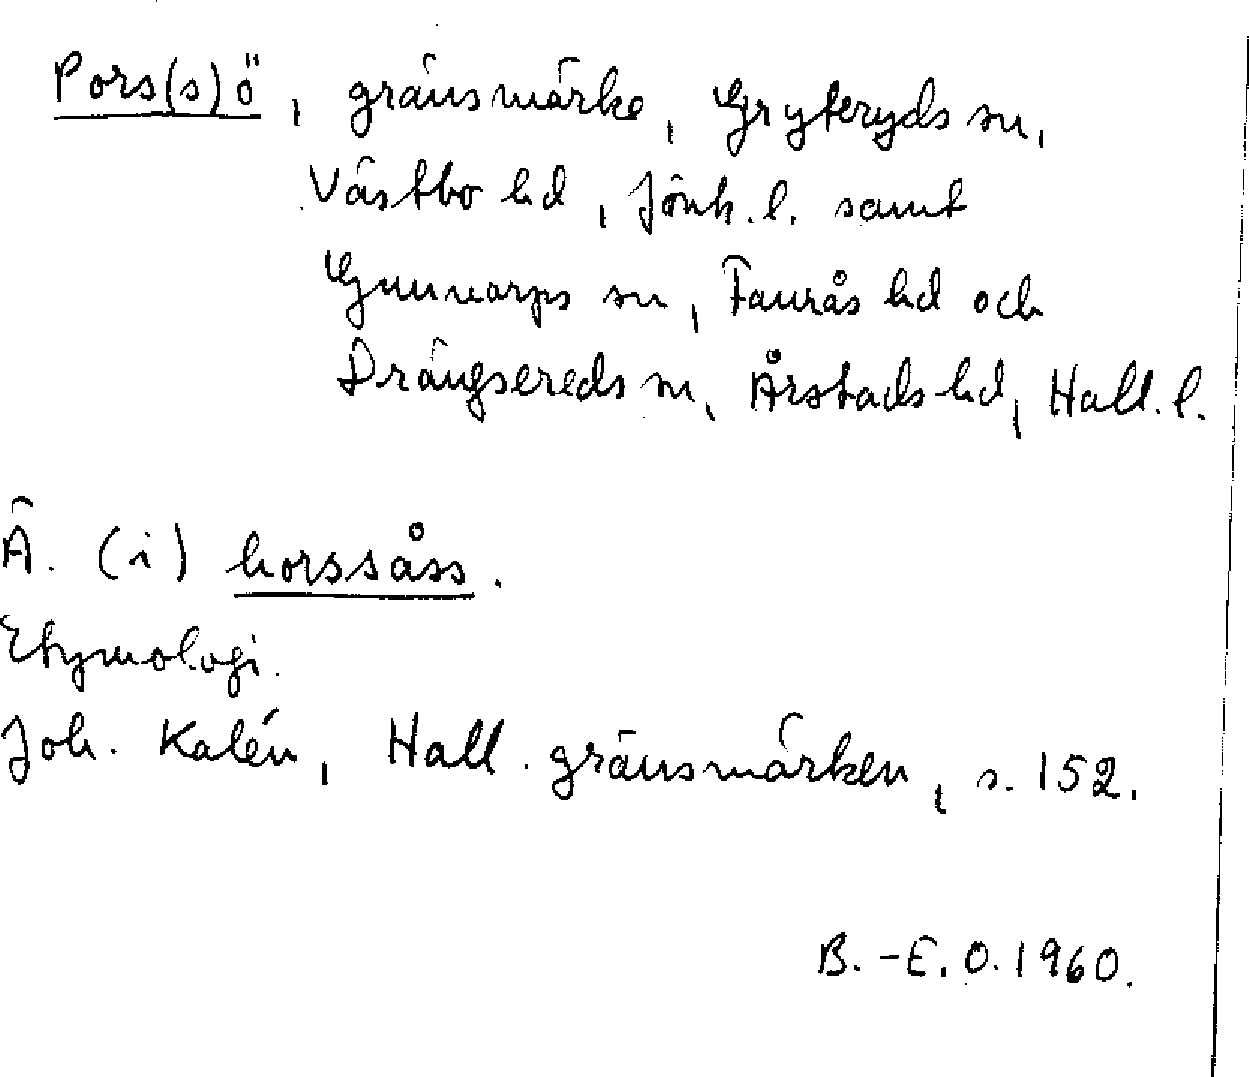 Pors(s)ö, gränsmärke, Gryteryds sn,
Västbo hd, Jönk. l. samt
Gunnarps sn, Faurås hd och
Drängsereds sn, Årstads hd, Hall. l.
Ä. (i) horssåss.
Etymologi.
Joh. Kalén, Hall. gränsmärken, s. 152.
B.-E. O. 1960.